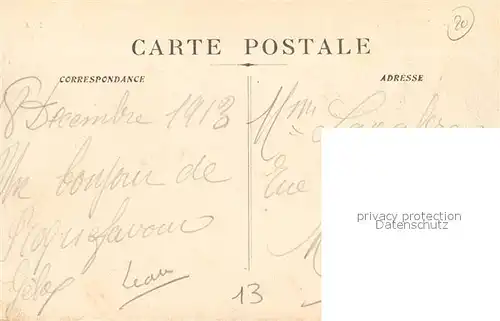 20
CARTE POSTALE
CORRESPONDANCE
ADRESSE
8 Decembre 1913
Un bonjour de
Roquefavour
Mme
à
Rue
13
privacy protection
AKPool.de